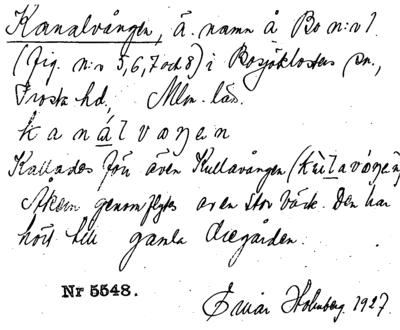 Kanalvången, å. namn å Bo n:r 1
(fig. n:r 5,6,7 och 8) i Bosjöklosters sn.,
Frosta hd., Mlm. län.
kanálvaŋen
Kallades förr även Kullavången (
Åkern genomflytes av en stor bäck. Den har
hört till gamla diegården.
Nr 5548.
Einar Holmberg. 1927.